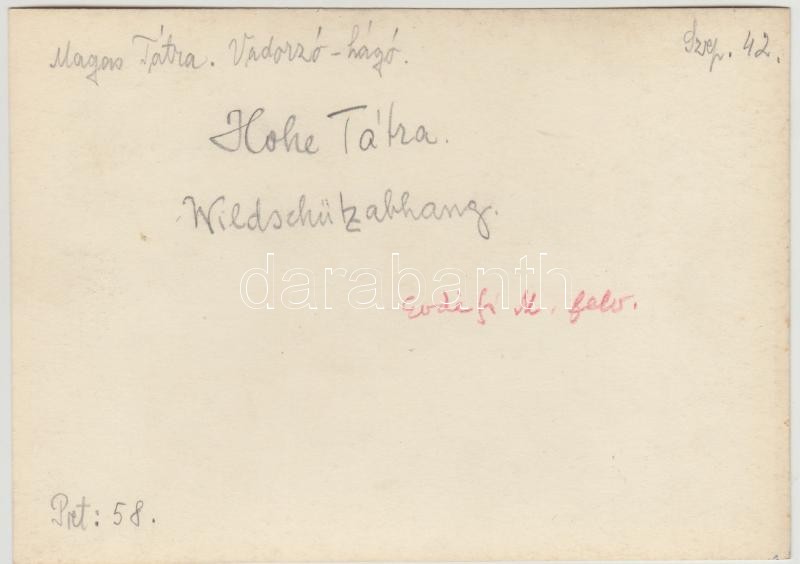 Magas Tátra. Vadorzó-hágó.
Szep. 42.
Hohe Tátra.
Wildschützabhang.
darabanth
Erdélyi M. felv.
Pret: 58.